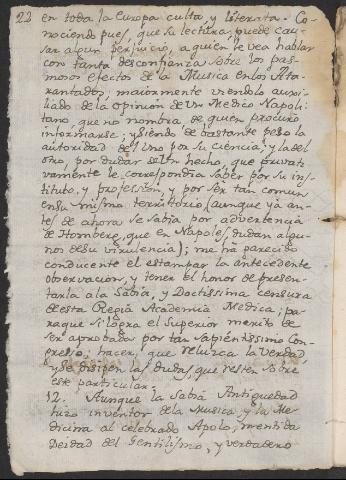 22 en toda la Europa culta, y Literata. Co-
nociendo pues, que su lectura puede cau-
sar algun perjuicio, a quien le vea hablar
con tanta desconfianza sobre los pas-
mosos efectos de la Musica en los Ata-
rantados; maiormente viendolo auxi-
liado de la opinión de Un Medico Napoli-
tano, que no nombra, de quien procuro
informarse; y siendo de bastante peso la
autoridad del Uno por su ciencia; y la del
otro, por dudar de Un hecho, que privati-
vamente le correspondia saber por su ins-
tituto, y profession, y por ser tan comun
en su mismo territorio (aunque ya an-
tes de ahora se sabia por advertencia
de Homberg, que en Napoles, dudan algu-
nos de su virulencia); me ha parecido
conducente el estampar la antecedente
observacion, y tener el honor de presen-
tarla à la Sabia, y Doctissima censura
de esta Regia Academia Medica; pa-
raque si logra el Superior merito de
ser aprobada por tan Sapientissimo Con-
gresso, hacer, que reluzca la Verdad
y se disipen las dudas, que resten sobre
este particular.
12. Aunque la Sabia Antiguedad
hizo inventor de la Musica, y la Me-
dicina al celebrado Apolo, mentida
Deidad del Gentilismo, y verdadero